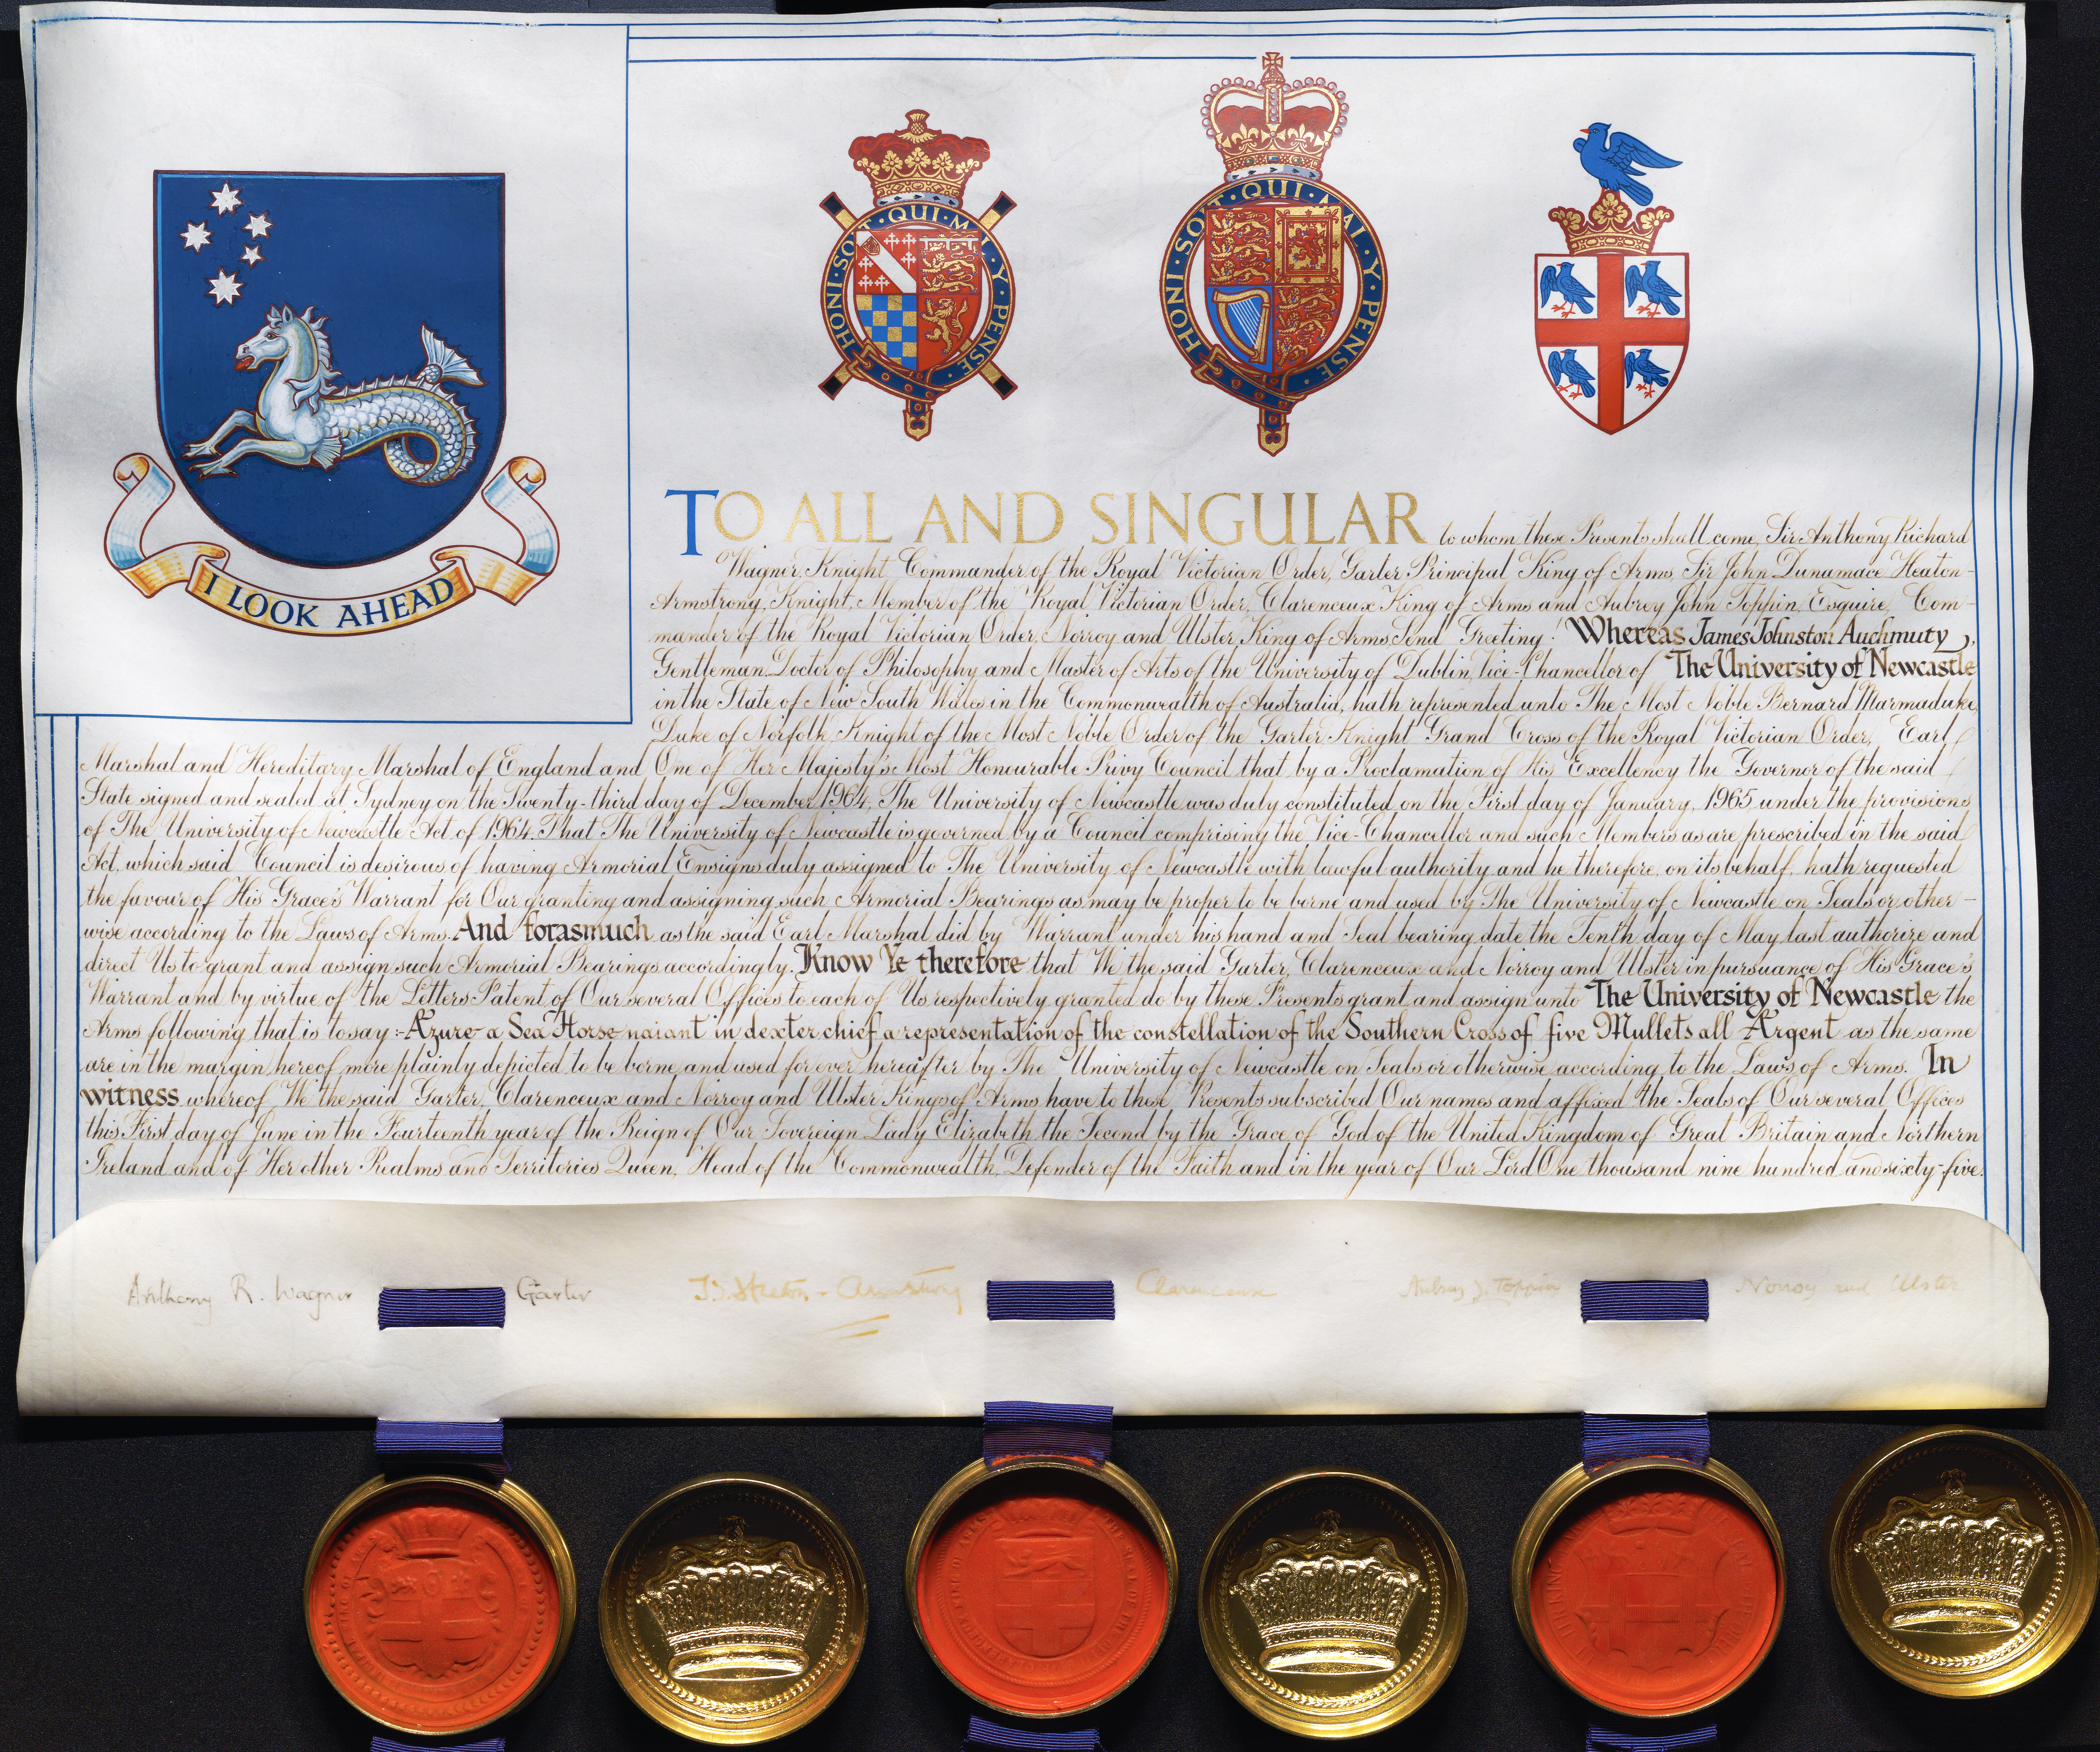 I LOOK AHEAD
HONI · SOIT · QUI · MAL · Y · PENSE
HONI · SOIT · QUI · MAL · Y · PENSE
TO ALL AND SINGULAR to whom these Presents shall come, Sir Anthony Richard
Wagner, Knight Commander of the Royal Victorian Order, Garter Principal King of Arms, Sir John Dunamace Heaton-
Armstrong, Knight, Member of the Royal Victorian Order, Clarenceux King of Arms and Aubrey John Toppin, Esquire, Com-
mander of the Royal Victorian Order, Norroy and Ulster King of Arms Send Greeting! Whereas James Johnston Auchmuty,
Gentleman, Doctor of Philosophy and Master of Arts of the University of Dublin, Vice-Chancellor of The University of Newcastle
in the State of New South Wales in the Commonwealth of Australia, hath represented unto The Most Noble Bernard Marmaduke,
Duke of Norfolk, Knight of the Most Noble Order of the Garter, Knight Grand Cross of the Royal Victorian Order, Earl
Marshal and Hereditary Marshal of England and One of Her Majesty's Most Honourable Privy Council that by a Proclamation of His Excellency the Governor of the said
State signed and sealed at Sydney on the Twenty-third day of December 1964, The University of Newcastle was duly constituted on the First day of January, 1965 under the provisions
of The University of Newcastle Act of 1964. That The University of Newcastle is governed by a Council comprising the Vice-Chancellor and such Members as are prescribed in the said
Act, which said Council is desirous of having Armorial Ensigns duly assigned to The University of Newcastle with lawful authority and he therefore, on its behalf, hath requested
the favour of His Grace's Warrant for Our granting and assigning such Armorial Bearings as may be proper to be borne and used by The University of Newcastle on Seals or other-
wise according to the Laws of Arms. And forasmuch as the said Earl Marshal did by Warrant under his hand and Seal bearing date the Tenth day of May last authorize and
direct Us to grant and assign such Armorial Bearings accordingly. Know Ye therefore that We the said Garter, Clarenceux and Norroy and Ulster in pursuance of His Grace's
Warrant and by virtue of the Letters Patent of Our several Offices to each of Us respectively granted do by these Presents grant and assign unto The University of Newcastle the
Arms following that is to say :- Azure a Sea Horse naiant in dexter chief a representation of the constellation of the Southern Cross of five Mullets all Argent as the same
are in the margin hereof more plainly depicted to be borne and used for ever hereafter by The University of Newcastle on Seals or otherwise according to the Laws of Arms. In
witness whereof We the said Garter, Clarenceux and Norroy and Ulster Kings of Arms have to these Presents subscribed Our names and affixed the Seals of Our several Offices
this First day of June in the Fourteenth year of the Reign of Our Sovereign Lady Elizabeth the Second by the Grace of God of the United Kingdom of Great Britain and Northern
Ireland and of Her other Realms and Territories Queen, Head of the Commonwealth, Defender of the Faith and in the year of Our Lord One thousand nine hundred and sixty-five.
Anthony R. Wagner Garter J.D. Heaton-Armstrong Clarenceux Aubrey J. Toppin Norroy and Ulster